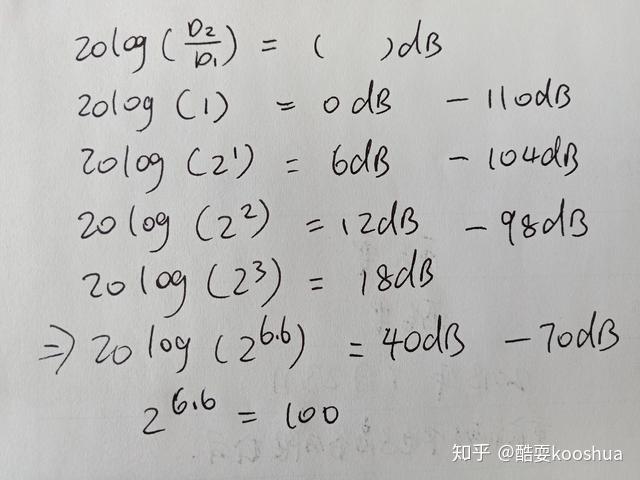 20log(D₂/D₁) = ( )dB
20log(1) = 0dB - 110dB
20log(2¹) = 6dB - 104dB
20log(2²) = 12dB - 98dB
20log(2³) = 18dB
⇒ 20log(2^6.6) = 40dB - 70dB
2^6.6 = 100
知乎 @酷耍kooshua